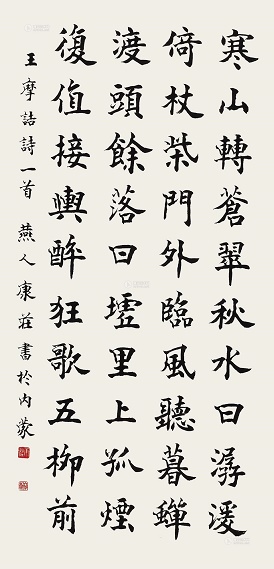 寒山轉蒼翠秋水日潺湲
倚杖柴門外臨風聽暮蟬
渡頭餘落日墟里上孤煙
復值接輿醉狂歌五柳前
王摩詰詩一首 燕人康莊書於内蒙